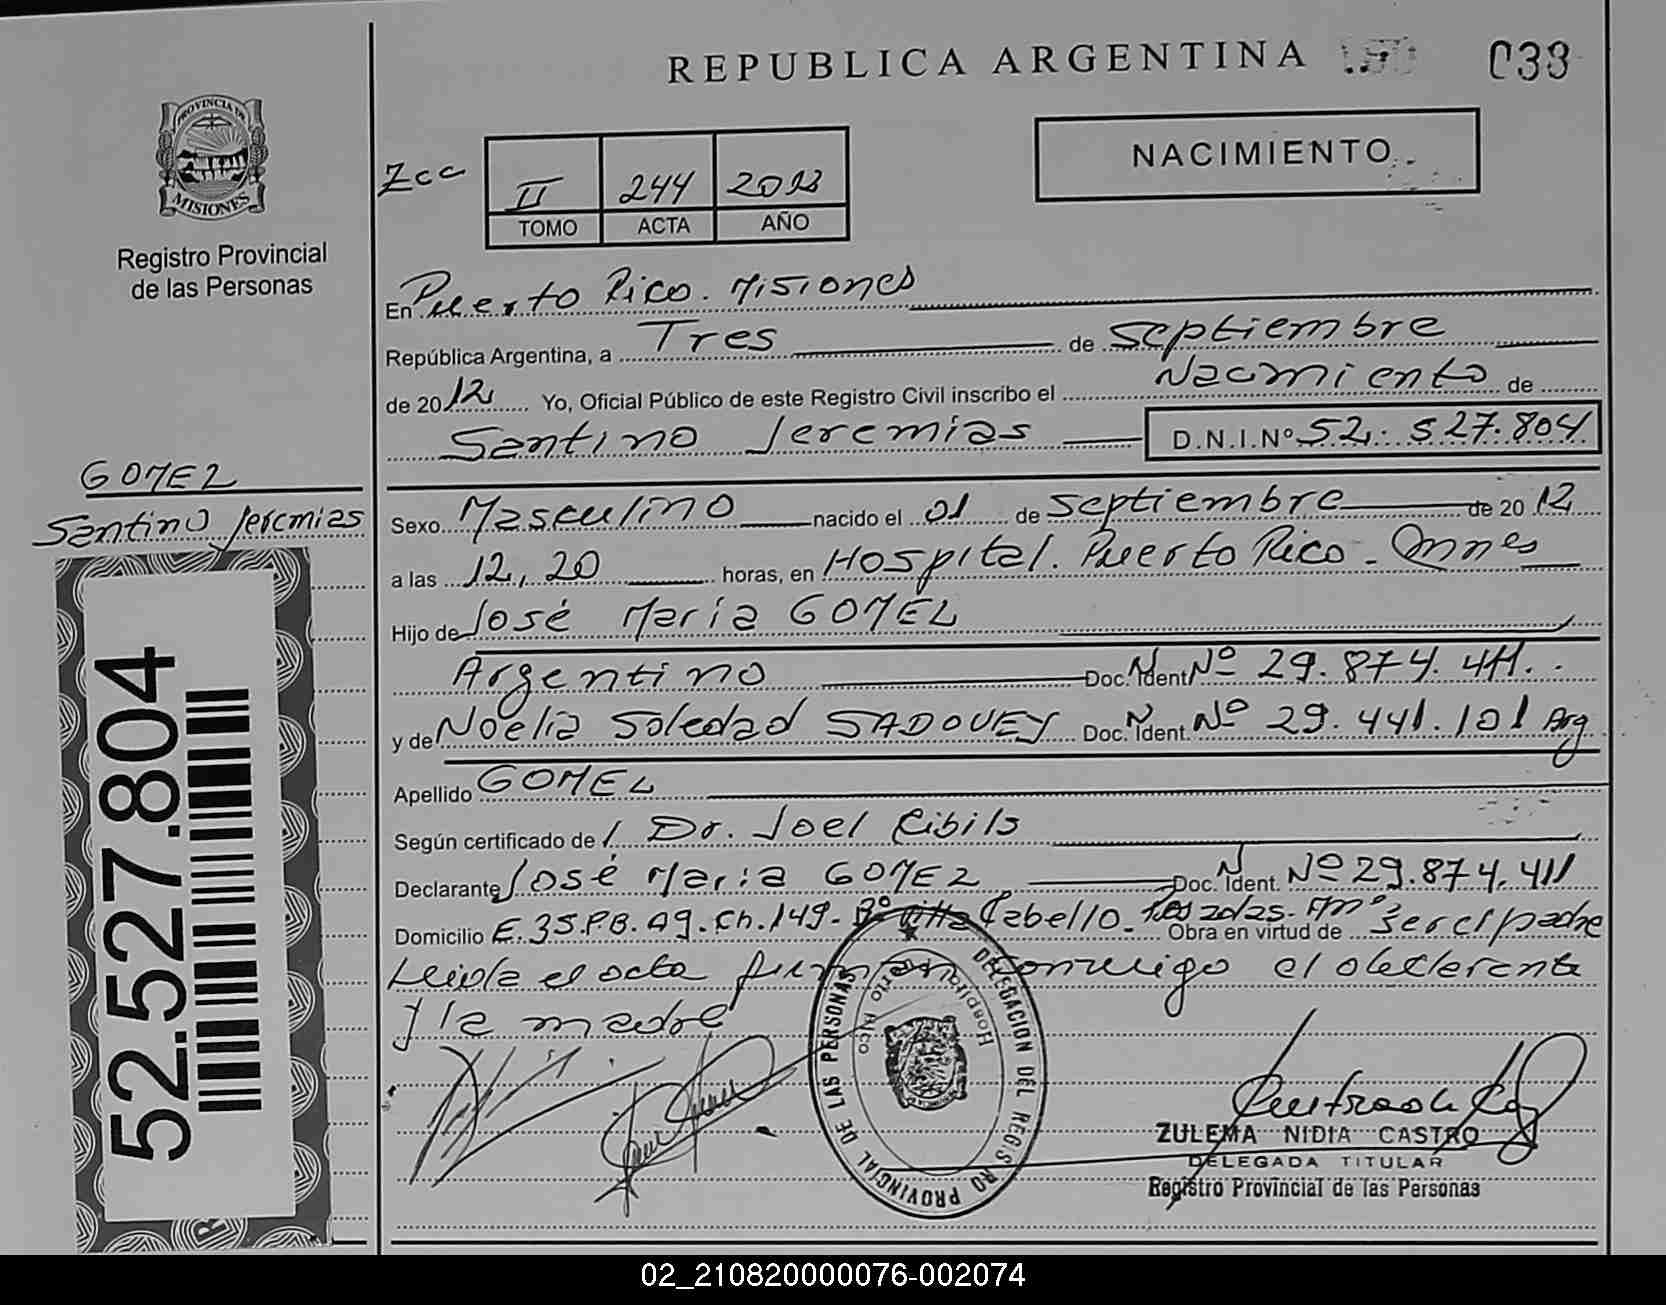 REPUBLICA ARGENTINA
033
PROVINCIA DE MISIONES
Registro Provincial
de las Personas
NACIMIENTO
II 244 2012
TOMO ACTA AÑO
En Puerto Rico. Misiones
República Argentina, a Tres de Septiembre
de 2012 Yo, Oficial Público de este Registro Civil inscribo el Nacimiento de
Santino Jeremias D.N.I.Nº 52.527.804
GOMEZ
Santino Jeremias
Sexo Masculino nacido el 01 de Septiembre de 2012
a las 12,20 horas, en Hospital. Puerto Rico - Mnes
Hijo de José Maria GOMEZ
Argentino Doc. N Ident. Nº 29.874.411.
y de Noelia Soledad SADOVEY Doc. N Ident. Nº 29.441.101 Arg
Apellido GOMEZ
Según certificado de Dr. Joel Ribils
Declarante José Maria GOMEZ Doc. N Ident. Nº 29.874.411
Domicilio E.35.P.B. Ag. Ch.149- Bº Villa Cabello - Posadas. Obra en virtud de ser el padre
Leida el acta firman conmigo el declarante
y la madre
52.527.804
DELEGACION DEL REGISTRO PROVINCIAL DE LAS PERSONAS
Hospital Puerto Rico
ZULEMA NIDIA CASTRO
DELEGADA TITULAR
Registro Provincial de las Personas
02_210820000076-002074